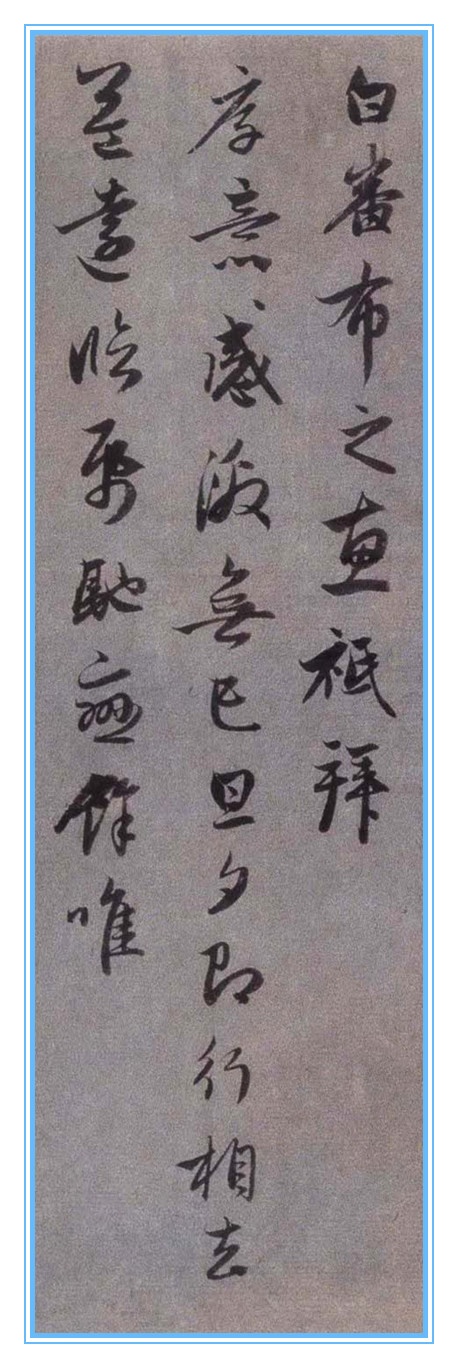 白蕃布之惠祇拜
厚意感激無已旦夕即行相去
益遠臨帋馳戀餘唯